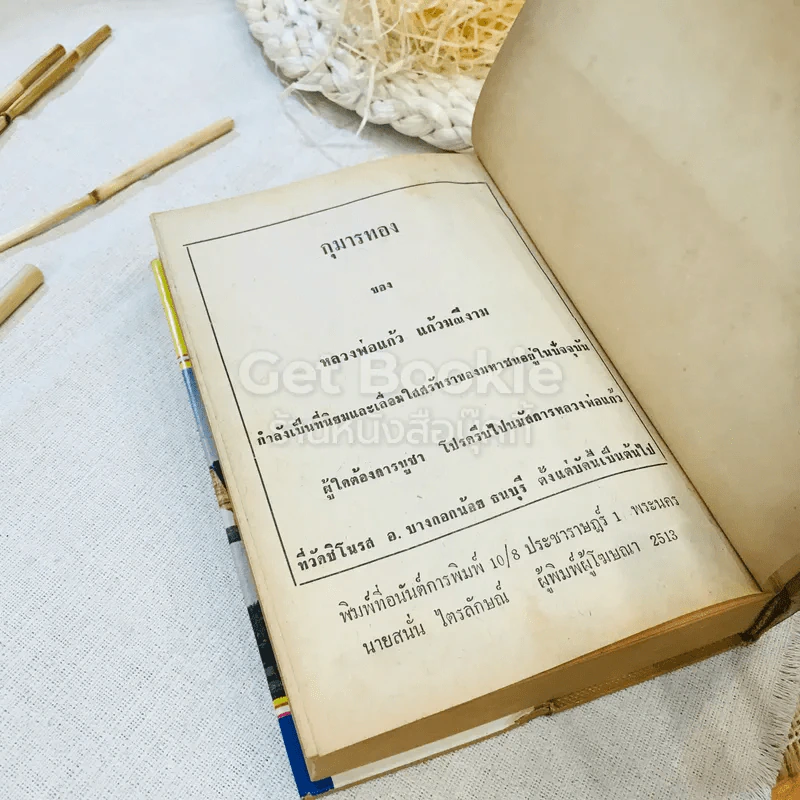 กุมารทอง
ของ
หลวงพ่อแก้ว แก้วมณีงาม
กำลังเป็นที่นิยมและเลื่อมใสศรัทราของมหาชนอยู่ในปัจจุบัน
ผู้ใดต้องการบูชา โปรดรีบไปนมัสการหลวงพ่อแก้ว
ที่วัดชิโนรส อ. บางกอกน้อย ธนบุรี ตั้งแต่บัดนี้เป็นต้นไป
พิมพ์ที่อนันต์การพิมพ์ 10/8 ประชาราษฎร์ 1 พระนคร
นายสนั่น ไตรลักษณ์ ผู้พิมพ์ผู้โฆษณา 2513
Get Bookie
ร้านหนังสือบุ๊กกี้